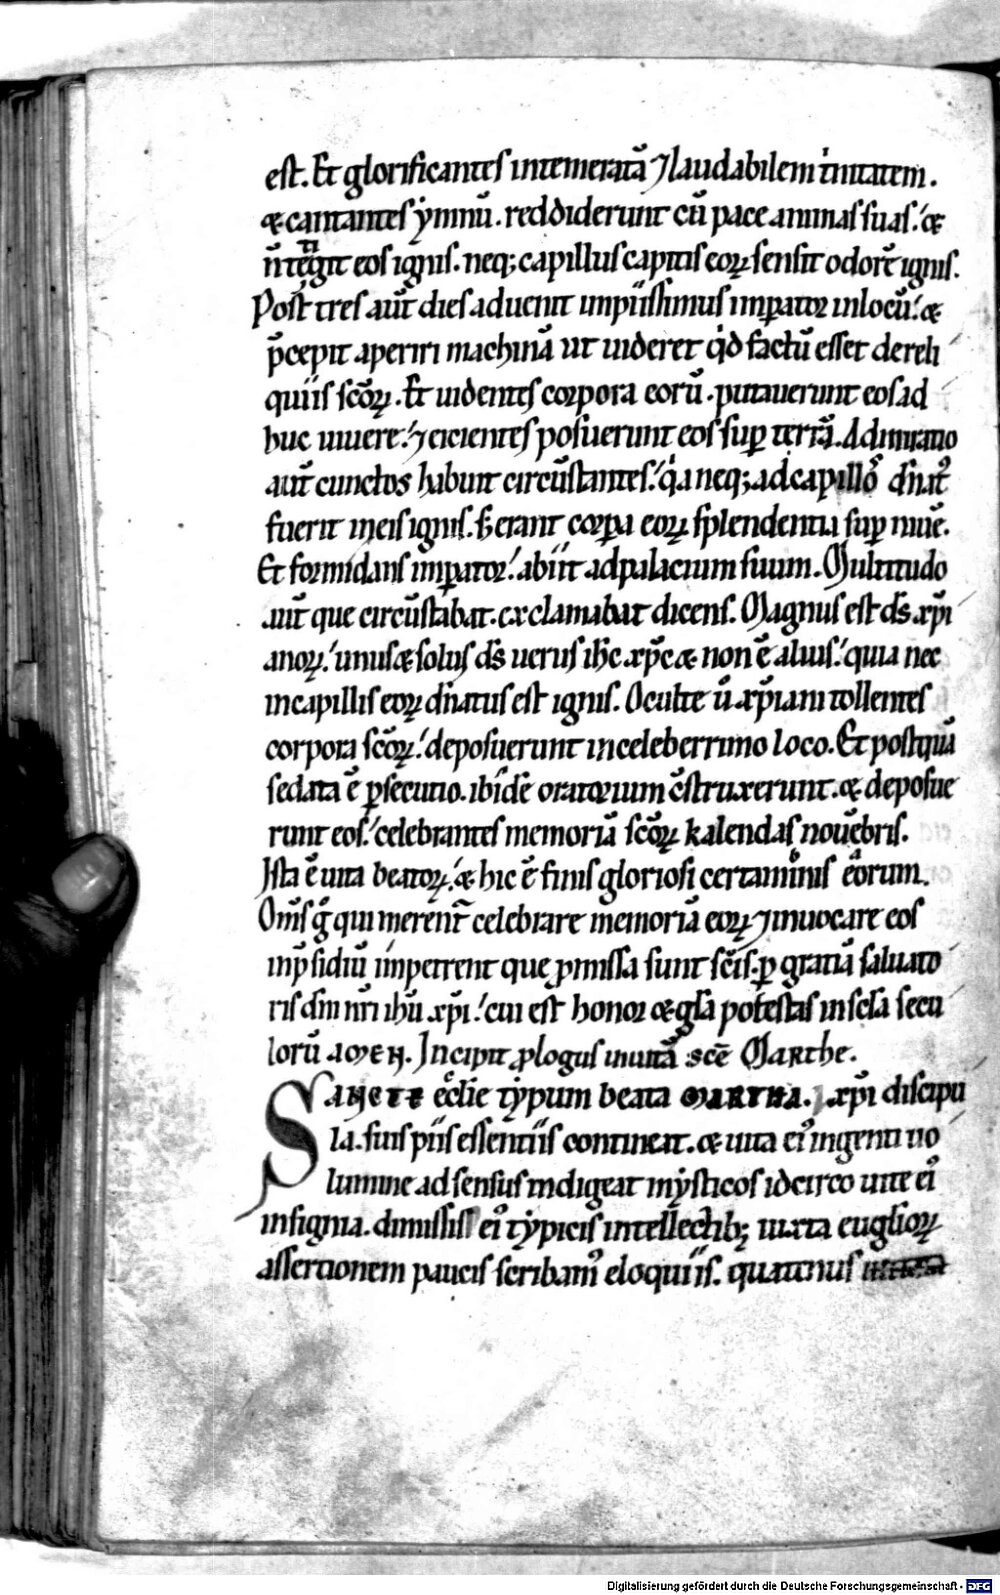 est. Et glorificantes intemeratā ⁊ laudabilem tͥnitatem.
& cantantes ẏmnū. reddiderunt cū pace animas suas. &
n̄ tetigit eos ignis. neq; capillus capitis eoꝝ sensit odorē ignis.
Post tres aūt dies aduenit impiissimus imꝑator in locū. &
p̄cepit aperiri machinā ut uideret qͥd factū esset de reli
quiis scōꝝ. Et uidentes corpora eorū. putauerunt eos ad
huc uiuere. ⁊ eicientes posuerunt eos suꝑ terrā. Admiratio
aūt cunctos habuit circūstantes. qͥa neq; ad capillō dn̄at᷒
fuerit in eis ignis. s; erant corꝑa eoꝝ splendentia suꝑ niuē.
Et formidans imꝑator. abiit ad palacium suum. Multitudo
aūt que circūstabat. exclamabat dicens. Magnus est ds̄ xp̄i
anoꝝ. unus & solus ds̄ uerus ihc̄ xpc̄ & non ē alius. quia nec
in capillis eoꝝ dn̄atus est ignis. Oculte ū xp̄iani tollentes
corpora scōꝝ. deposuerunt in celeberrimo loco. Et postquā
sedata ē ꝑsecutio. ibidē oratorium c̄struxerunt. & deposue
runt eos. celebrantes memoriā scōꝝ kalendas nouēbris.
Ista ē uita beatoꝝ. & hic ē finis gloriosi certaminis eorum.
Om̄s gͦ qui merent̄ celebrare memoriā eoꝝ ⁊ inuocare eos
in p̄sidiū impetrent que ꝓmissa sunt scīs. ꝑ gratiā saluato
ris dn̄i nr̄i ihū xp̄i. cui est honor & gl̄a potestas in scl̄a secu
lorū AMEN. Incipit ꝓlogus in uitā scē Marthe.
SANCTE ec̄clie tẏpum beata MARTHA. xp̄i discipu
la. suis piis essentiis contineat. & uita ei᷒ ingenti uo
lumine ad sensus indigeat mẏsticos idcirco uite ei᷒
insignia. dimissis ei᷒ tẏpicis intellectib; iuxta euḡlioꝝ
assertionem paucis scribam᷒ eloquiis. quatinus